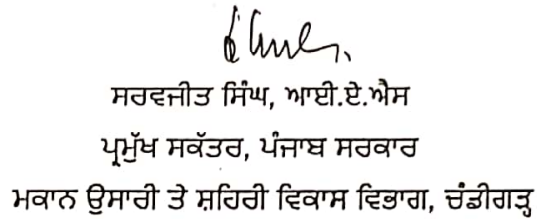 ਸਰਵਜੀਤ ਸਿੰਘ, ਆਈ.ਏ.ਐਸ
ਪ੍ਰਮੁੱਖ ਸਕੱਤਰ, ਪੰਜਾਬ ਸਰਕਾਰ
ਮਕਾਨ ਉਸਾਰੀ ਤੇ ਸ਼ਹਿਰੀ ਵਿਕਾਸ ਵਿਭਾਗ, ਚੰਡੀਗੜ੍ਹ